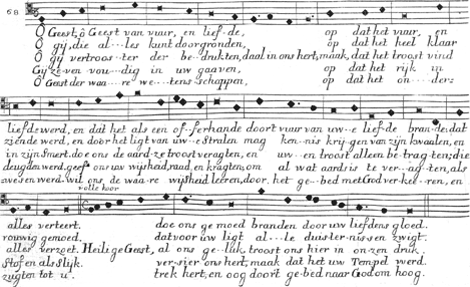 68
O Geest, ô Geest van vuur, en lief-de, op dat het vuur, en
O gij, die al-les kunt doorgronden, op dat het heel klaar
O gij vertroos-ter der be-drukten, daal in ons hert, maak, dat het troost vind
Gij zeven vou-dig in uw gaaven, op dat het rijk in
O Geest der waa-re' we-tens schappen, op dat het on-der=
liefde werd, en dat het als een of-ferhande doort vuur van uw-e lief-de brande; dat
ziende werd, en door het ligt van uw-e stralen mag ken-nis krijgen van zijn kwaalen, en
in zijn smert, doe ons de aardze troost veragten, en uw-en troost alleen betragten; die
deugden werd, geef ons uw wijsheid, raad, en kragten, om al wat aards is te ver-ag-ten, als
wesen werd, wil ons, de waa-re wijsheid leeren, door het ge-bed met God verkee-ren, en
volle koor
alles verteert. doe ons ge moed branden door uw liefdens gloed.
rouwig gemoed, dat voor uw ligt al-le duister-nissen zwigt.
alles verzoet. Heilige Geest, al ons ge-luk, troost ons hier in onzen druk.
stof en als slijk. ver-sier ons hert, maak dat het uw Tempel werd.
zugten tot u. trek hert, en oog door t ge-bed naar God om hoog.